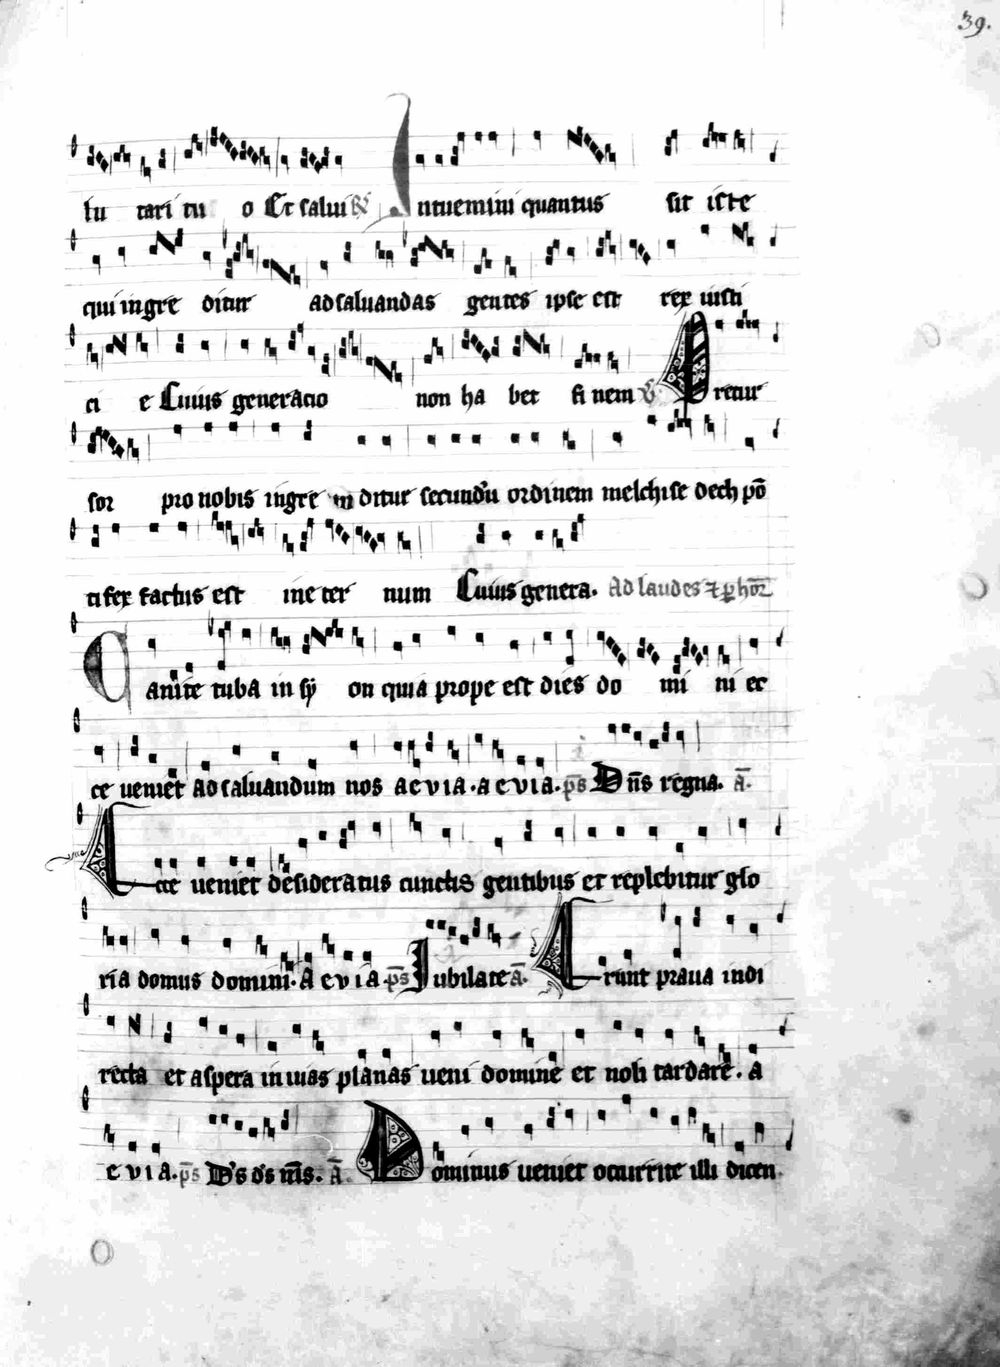 39.
lu tari tu o Et salui R̄ Intuemini quantus sit iste
qui ingre ditur ad saluandas gentes ipse est rex iusti
ci e Cuius generacio non ha bet fi nem V̄ Precur
sor pro nobis ingre m ditur secundū ordinem melchise dech pō
tifex factus est ine ter num Cuius genera. Ad laudes ⁊ ꝑ hor̄
Canite tuba in sy on quia prope est dies do mi ni ec
ce ueniet ad saluandum nos aevia. aevia. p̄s Dn̄s regna. ā.
Ecce ueniet desideratus cunctis gentibus et replebitur glo
ria domus domini. A evia. p̄s Iubilate ā. Erunt praua indi
recta et aspera in uias planas ueni domine et noli tardare. a
evia. p̄s D's d's m̄s. ā. Dominus ueniet occurrite illi dicen